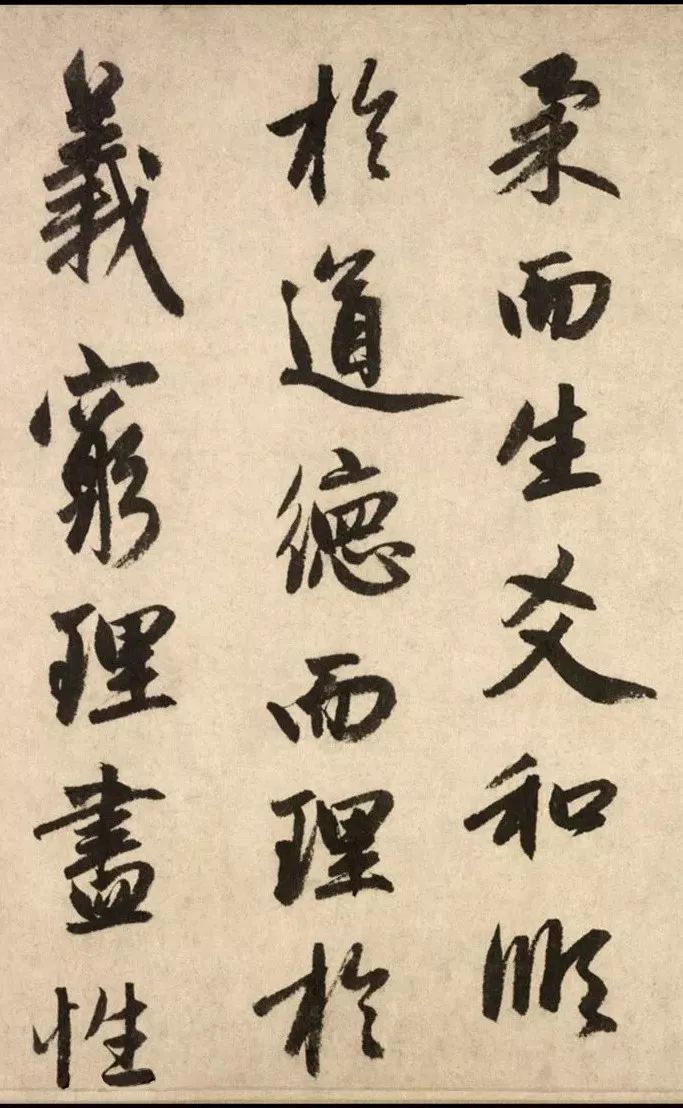 柔而生爻和順
於道德而理於
義窮理盡性